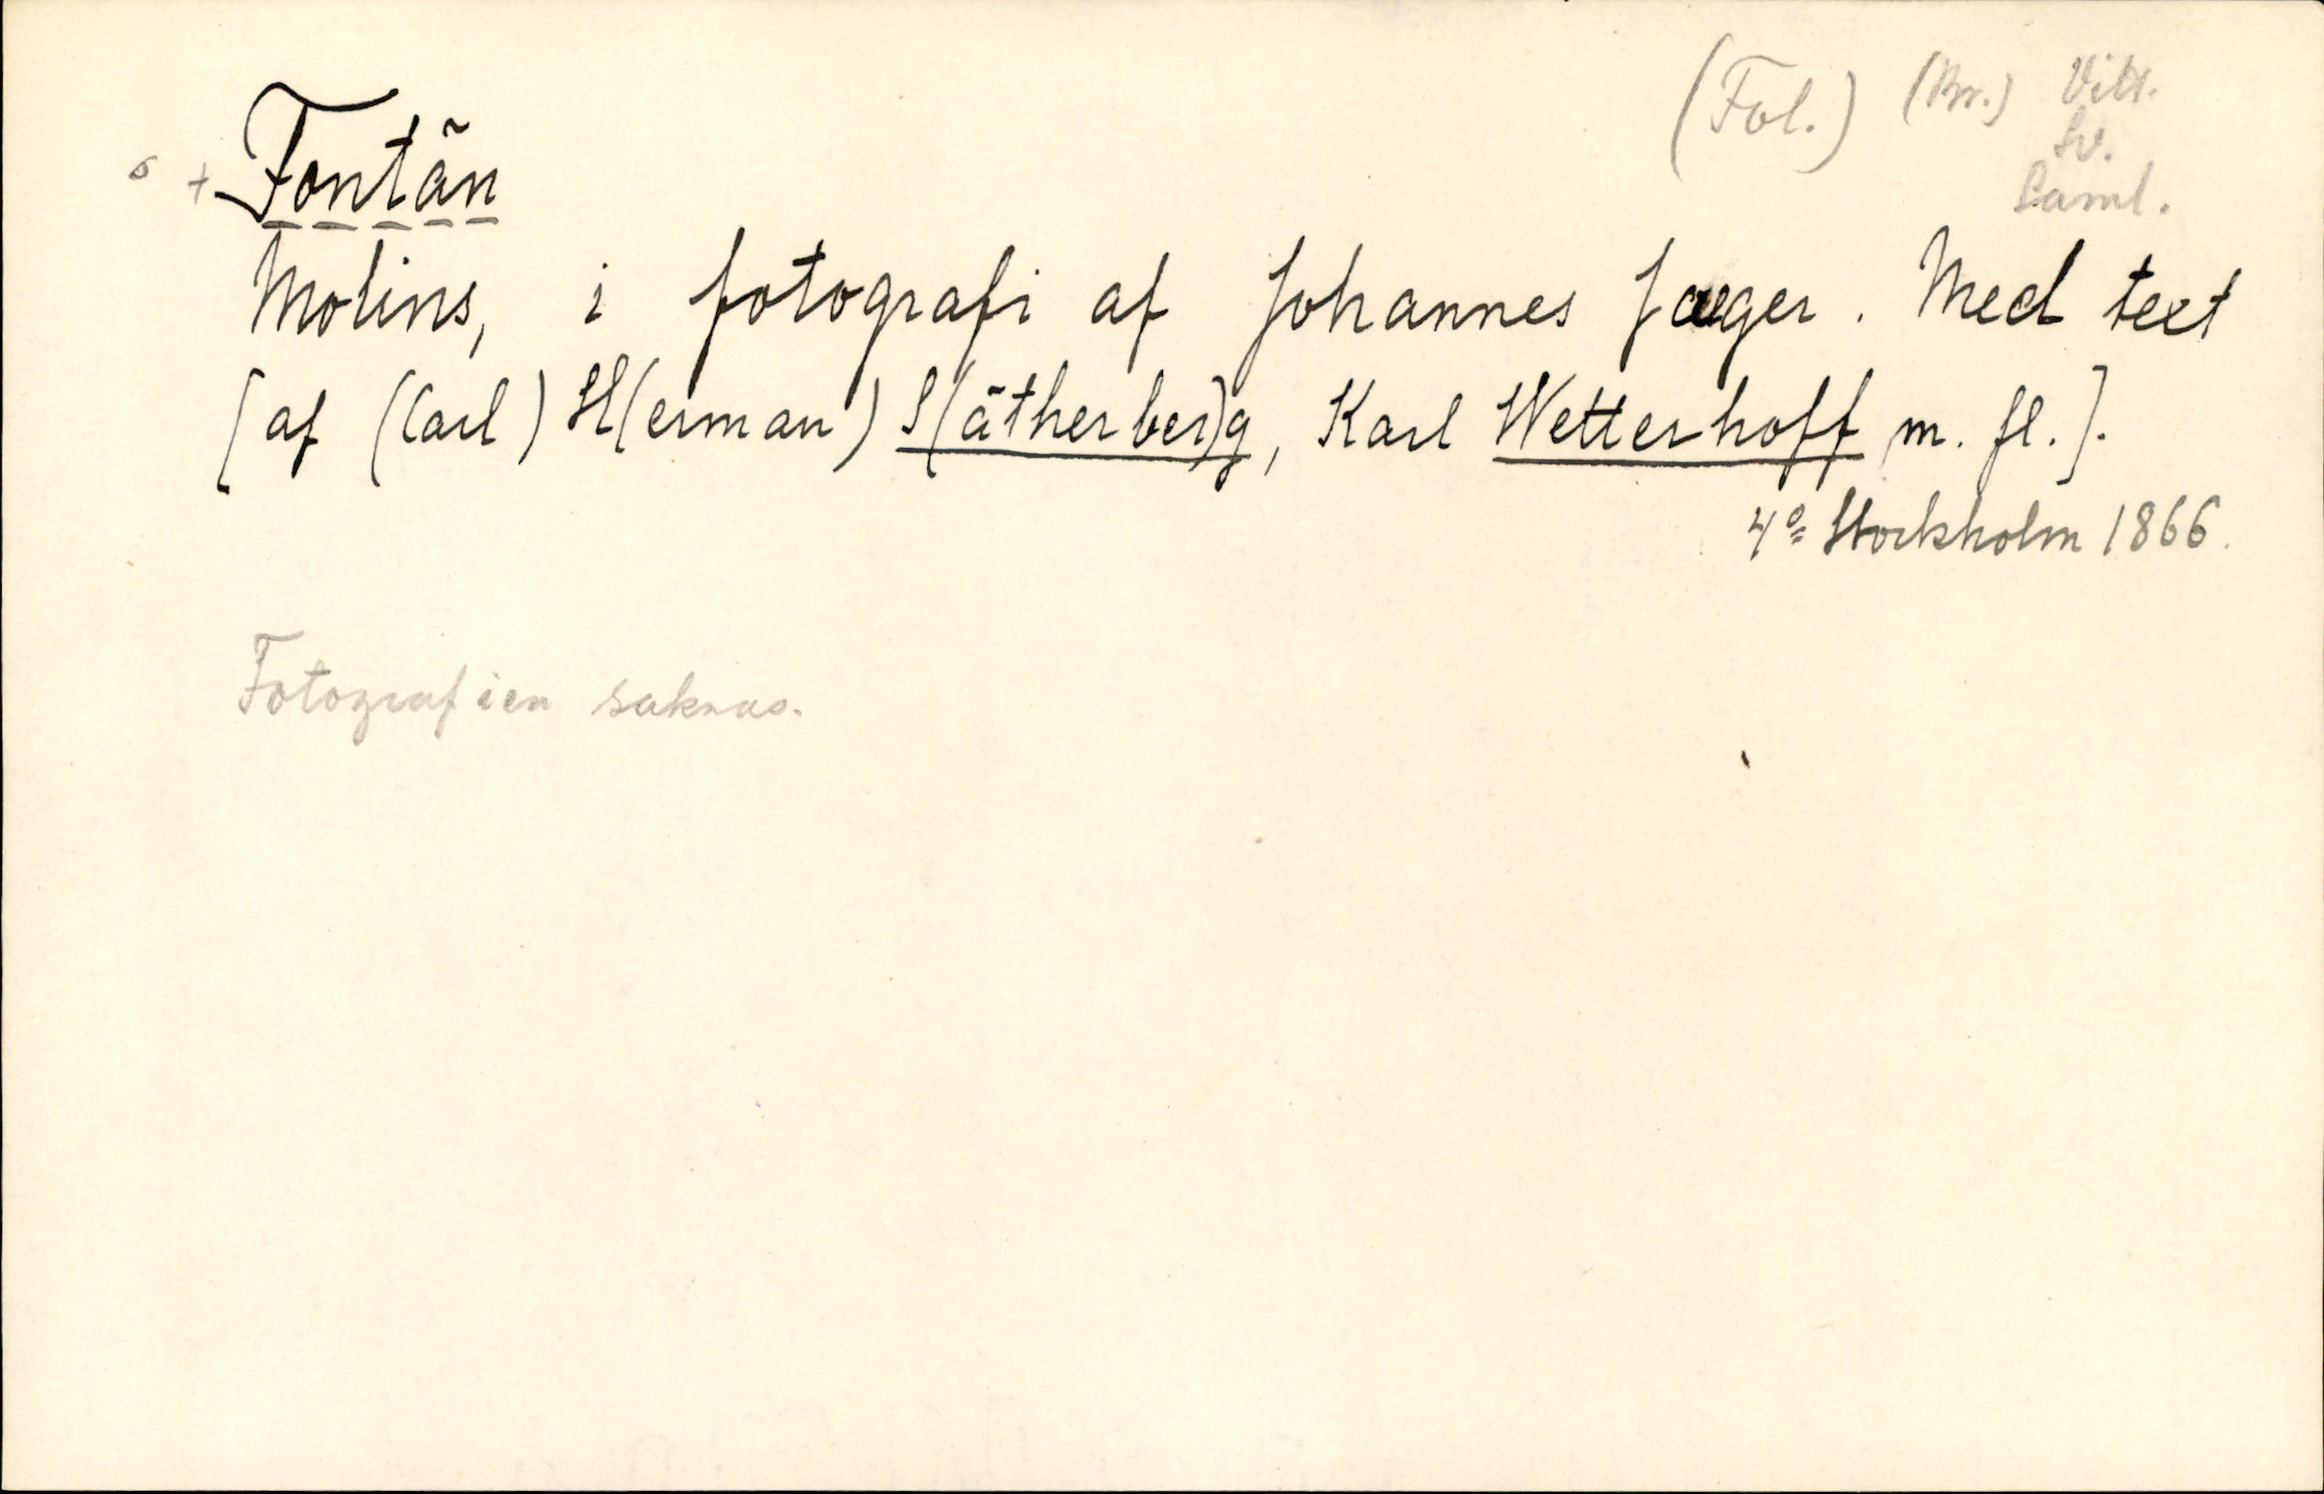 (Fol.) (Br.) Vitt.
Sv.
Saml.
+ Fontän
Molins, i fotografi af Johannes Jaeger. Med text
[af (Carl) H(erman) S(ätherber)g, Karl Wetterhoff m. fl.].
4:o Stockholm 1866.
Fotografien saknas.